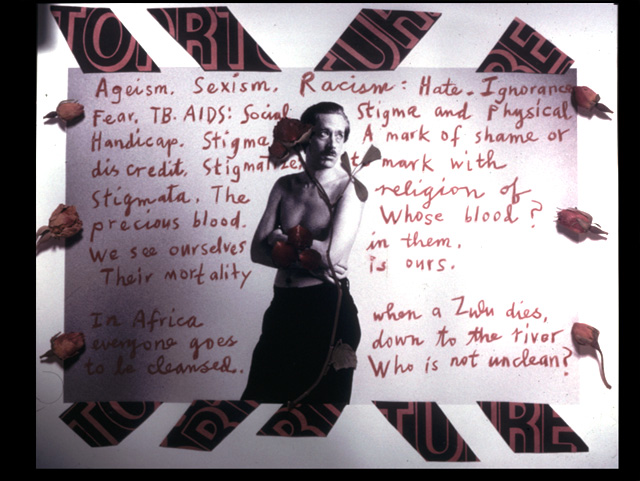 TORTURE
Ageism. Sexism. Racism: Hate. Ignorance
Fear. TB. AIDS: Social Stigma and Physical
Handicap. Stigma A mark of shame or
discredit. Stigmatize to mark with
Stigmata. The religion of
precious blood. Whose blood?
We see ourselves in them.
Their mortality is ours.
In Africa when a Zulu dies,
everyone goes down to the river
to be cleansed. Who is not unclean?
TORTURE